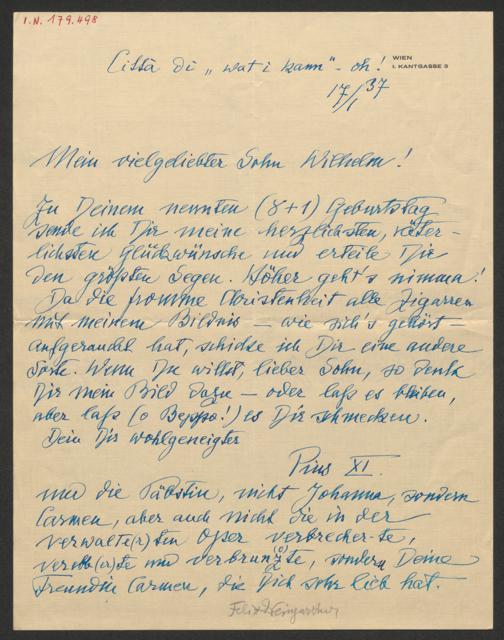 I.N. 179.498
Città di „wat i kann" - oh!
WIEN
I. KANTGASSE 3
17/I 37
Mein vielgeliebter Sohn Wilhelm!
Zu Deinem neunten (8+1) Geburtstag
sende ich Dir meine herzlichsten, väter-
lichsten Glückwünsche und erteile Dir
den größten Segen. Höher geht's nimma!
Da die fromme Christenheit alle Zigarren
mit meinem Bildnis – wie sich's gehört –
aufgeraucht hat, schicke ich Dir eine andere
Sorte. Wenn Du willst, lieber Sohn, so denk
Dir mein Bild dazu – oder laß es bleiben,
aber laß (o Beppo!) es Dir schmecken.
Dein Dir wohlgeneigter
Pius XI.
und die Päbstin, nicht Johanna, sondern
Carmen, aber auch nicht die in der
verwalte(r)ten Oper verbrecher-te,
und verbrunzte, sondern Deine
Freundin Carmen, die Dich sehr lieb hat.
Felix Weingartner